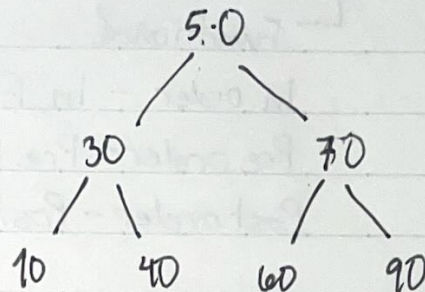 5.0
30 70
10 40 60 90